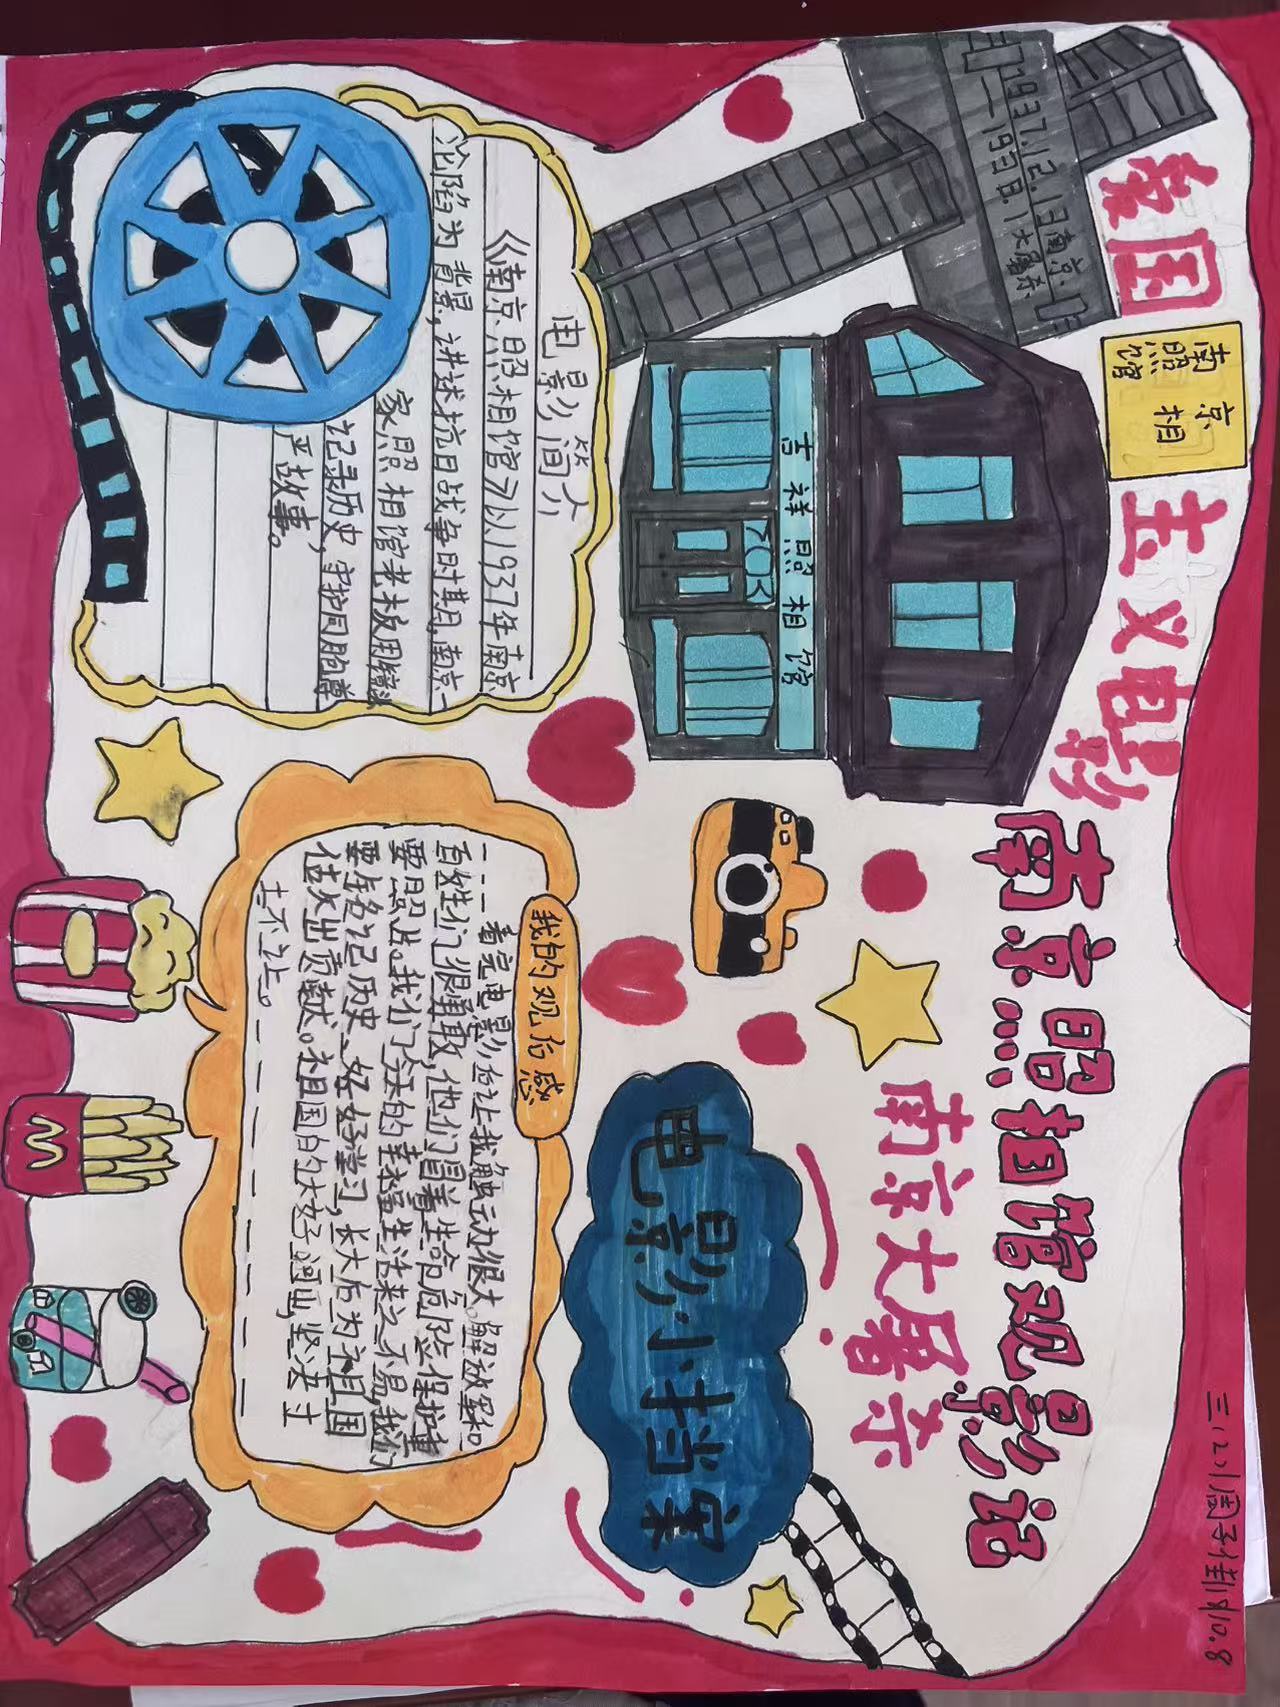 家国
南京
照相
馆
主义电影
南京照相馆观影记
南京大屠杀
1937.12.13南京
—1938.1大屠杀
吉祥照相馆
电影小档案
电影简介
《南京照相馆》以1937年南京
沦陷为背景,讲述抗日战争时期,南京一
家照相馆老板用镜头
记录历史,守护同胞尊
严故事。
我的观后感
看完电影后让我触动很大。解放军和
百姓们很勇敢,他们冒着生命危险保护重
要照片。我们今天的幸福生活来之不易,我们
要铭记历史、好好学习,长大后为祖国
也做出贡献。祖国的大好河山,坚决寸
土不让。
三、201周子桂1810.8